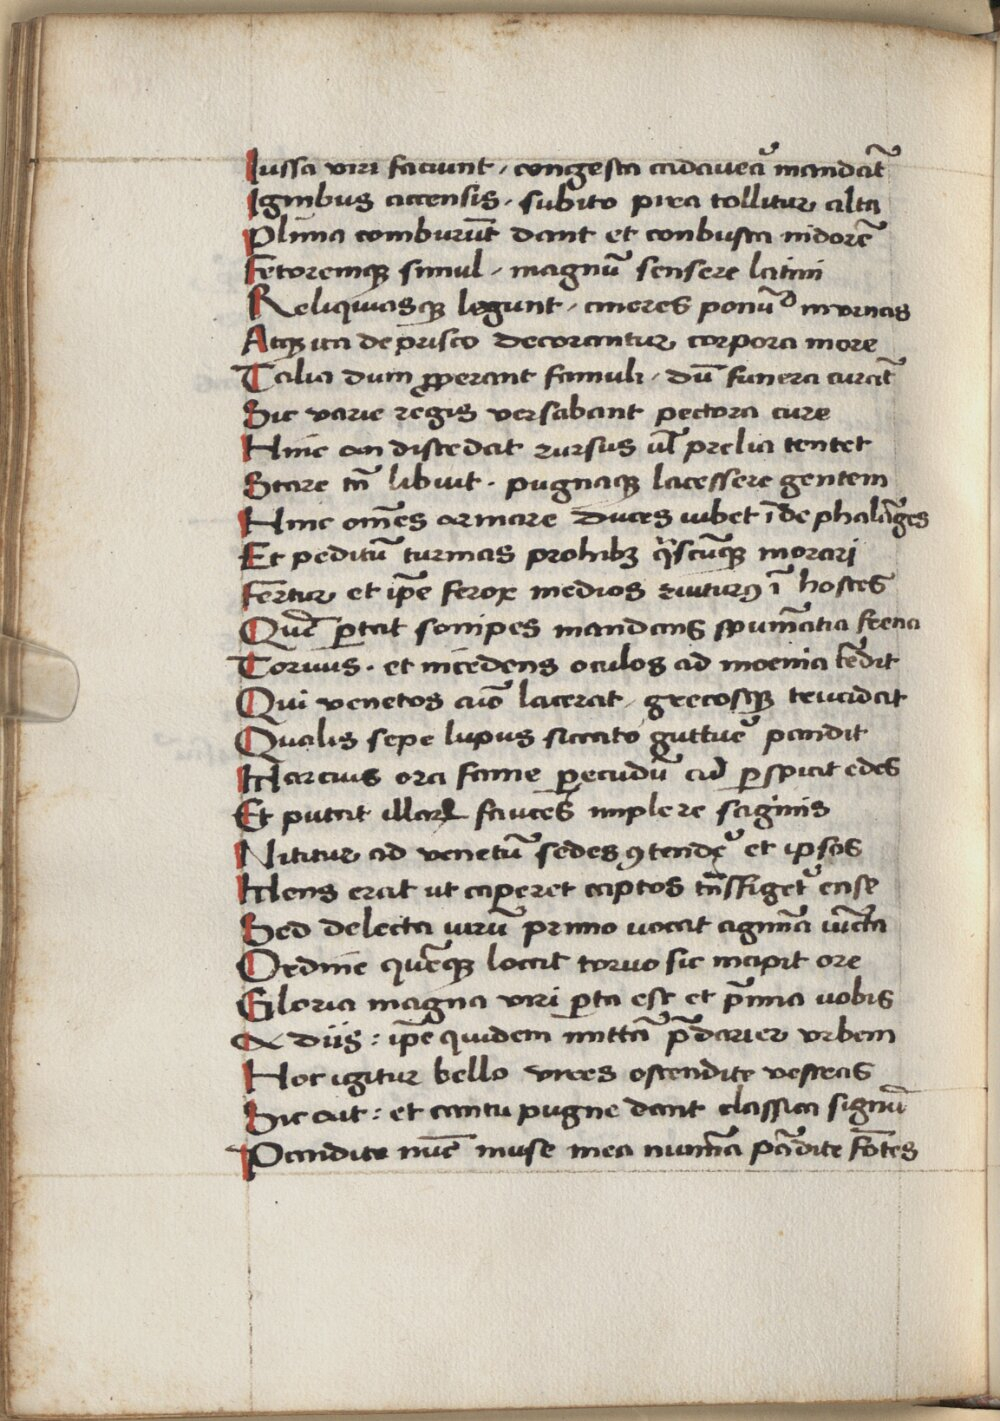 Iussa viri faciunt, congesta cadaueā mandāt
Ignibus accensis, subito pira tollitur alta
Plima comburūt dant et conbusta nidorē
Fetoremqꝫ simul, magnū sensere latini
Reliquiasqꝫ legunt, cineres ponūᵈ in vrnas
Atqꝫ ita de prisco decorantur corpora more
Talia dum ꝓperant famuli, dū funera curāt
Sic varie regis versabant pectora cure
Hinc an discedat rursus ul̄ prelia tentet
Stare tn̄ libuit. pugnaqꝫ lacessere gentem
Hinc om̄es armare duces iubet īde phalāges
Et peditū turmas prohibꝫ qͥscūqꝫ morari
Fertur et ip̄e ferox medios ruiturꝯ ī hostes
Quē ꝑtat sonipes mandans spumātia frena
Toruus. et incedens oculos ad moenia tēdit
Qui venetos aīo lacerat, grecosqꝫ trucidat
Qualis sepe lupus siccato guttuē pandit
Marcius ora fame ꝑecudū cū ꝑspicit edes
Et putat illaꝝ fauces implere saginis
Nititur ad venetū sedes ꝯtendēˀ et ipsos
Mens erat ut caperet captos tn̄sfigetˀ ense
Sed delecta uirū primo uocat agmīa iūcta
Ordine quēqꝫ locat toruo sic incipit ore
Gloria magna viri ꝑta est et p̄mia uobis
& diis: ip̄e quidem mittā p̄darier vrbem
Hoc igitur bello vires ostendite vestras
Sic ait: et cantu pugne dant classica signū
Pandite nūc muse mea numīa pādite fōtes